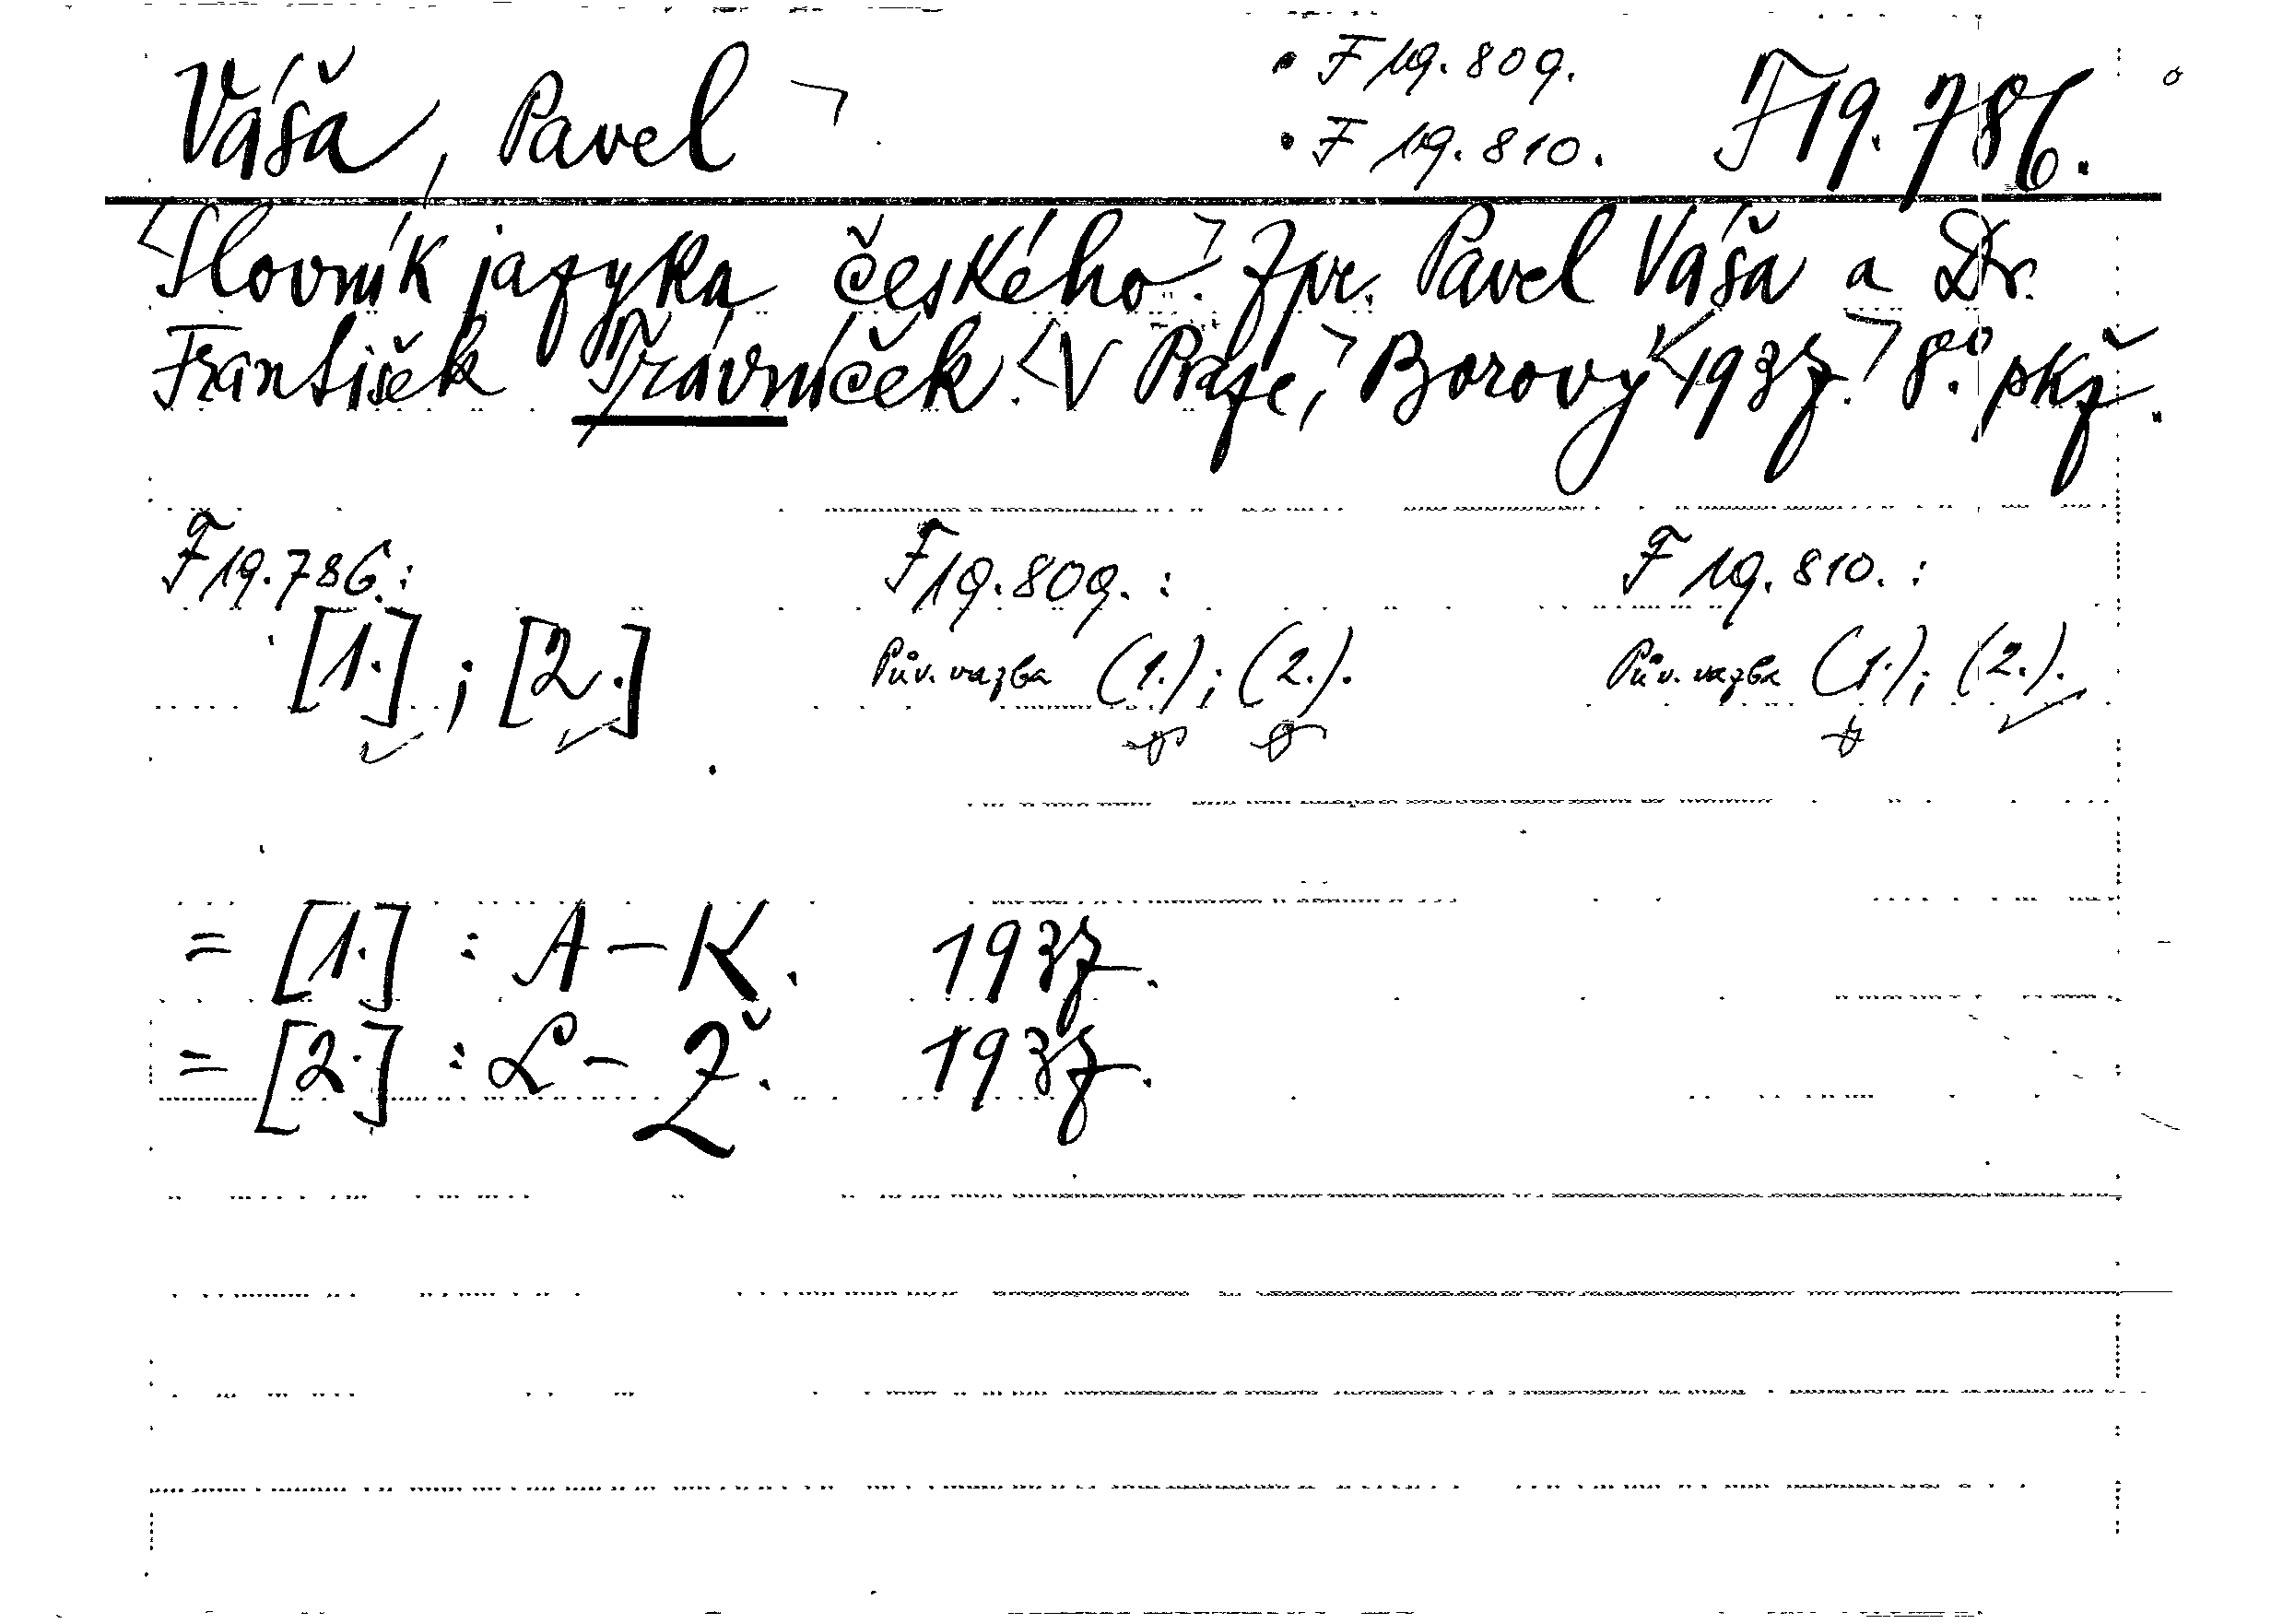 Váša, Pavel
• F 19.809.
• F 19.810.
F 19.786.
Slovník jazyka českého. Zpr. Pavel Váša a Dr.
František Trávníček. V Praze, Borový 1937. 8° pkž.
F 19.786.: F 19.809.: F 19.810.:
[1.] ; [2.] Pův. vazba (1.); (2.). Pův. vazba (1.); (2.).
= [1.] : A – K. 1937.
= [2.] : L – Ž. 1937.